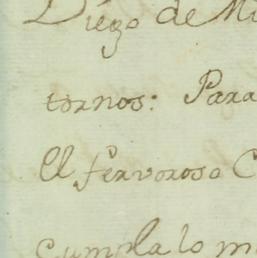 Diego de Mi
tornos: Para
El fervoroso C
cumpla lo m